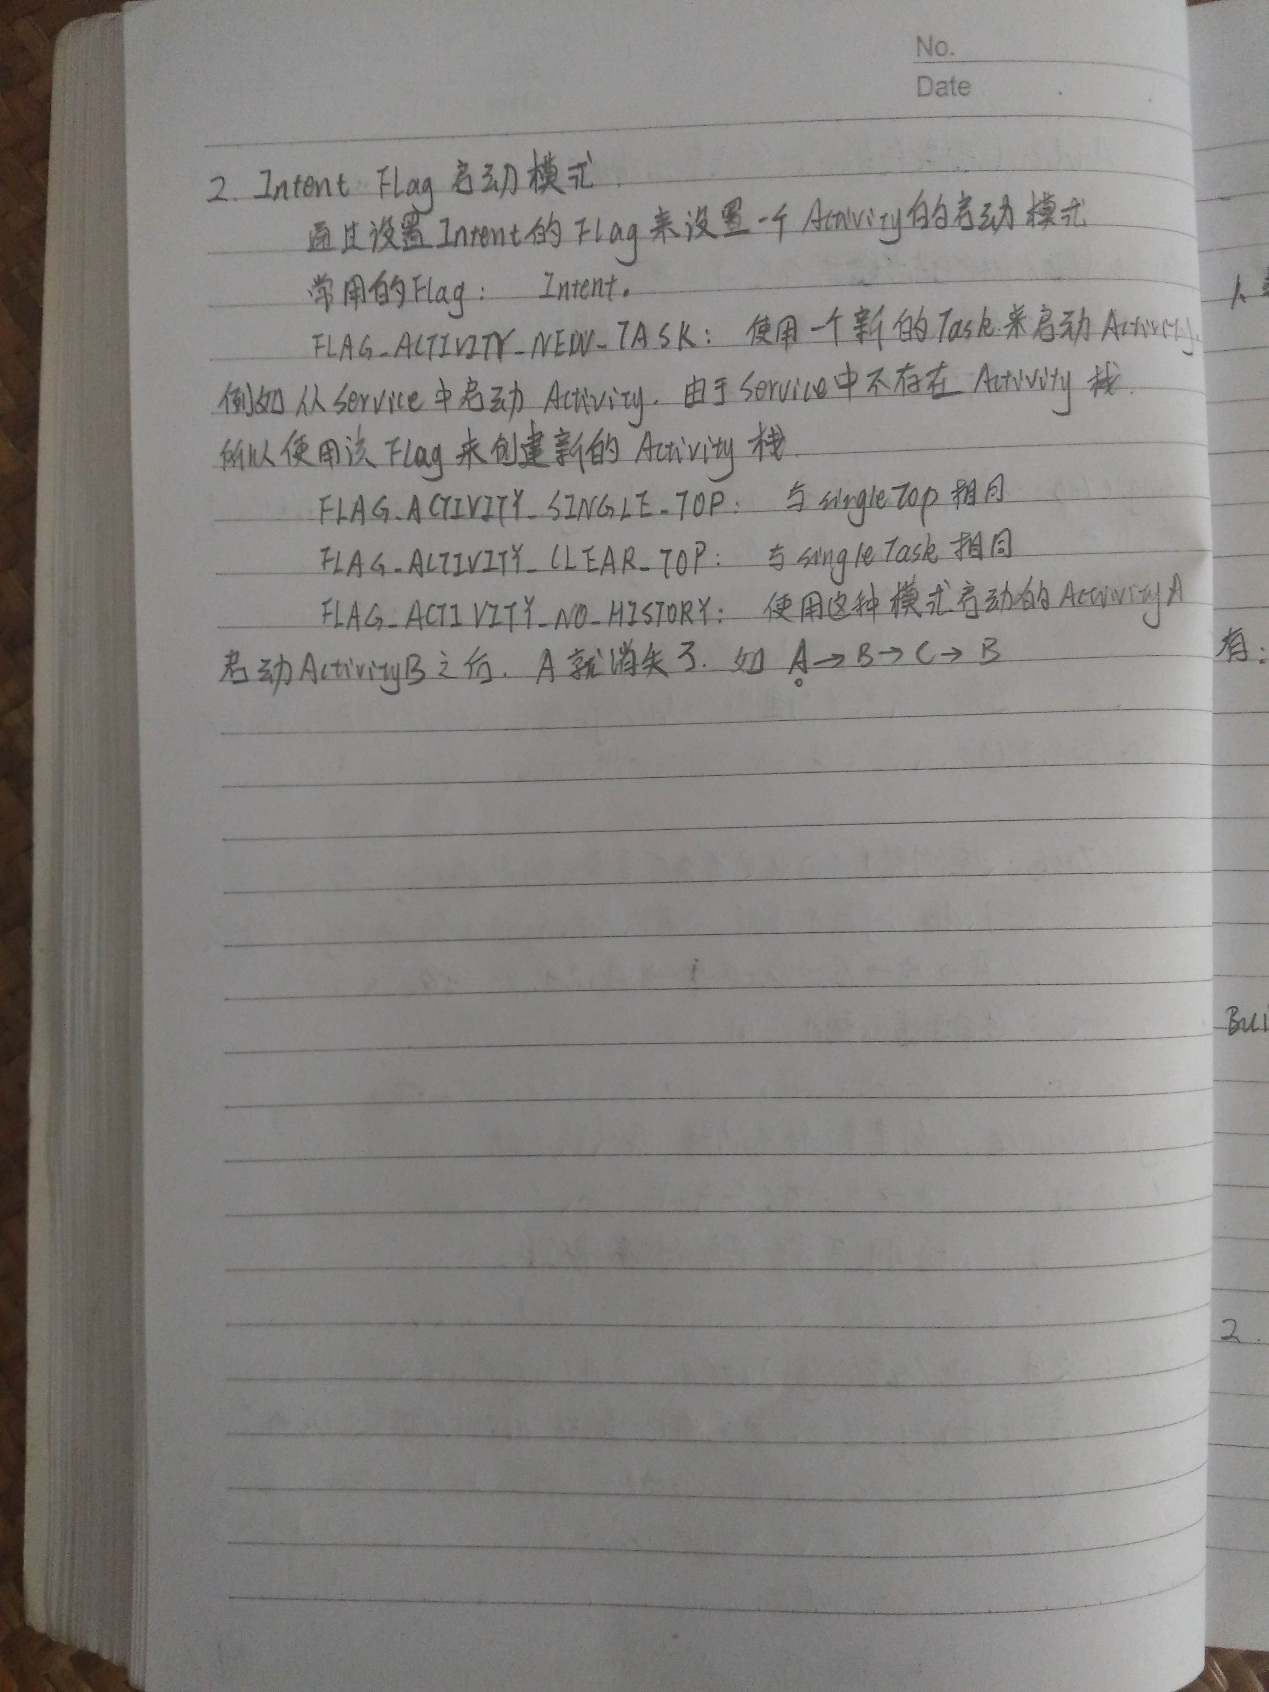 No.
Date
2. Intent Flag 启动模式
通过设置Intent的Flag来设置一个Activity的启动模式
常用的Flag： Intent.
FLAG_ACTIVITY_NEW_TASK： 使用一个新的Task来启动Activity.
例如从Service中启动Activity. 由于Service中不存在Activity栈.
所以使用该Flag来创建新的Activity栈.
FLAG_ACTIVITY_SINGLE_TOP： 与singleTop相同
FLAG_ACTIVITY_CLEAR_TOP： 与singleTask相同
FLAG_ACTIVITY_NO_HISTORY： 使用这种模式启动的ActivityA
启动ActivityB之后. A就消失了. 如 A→B→C→B
1.
有：
2.